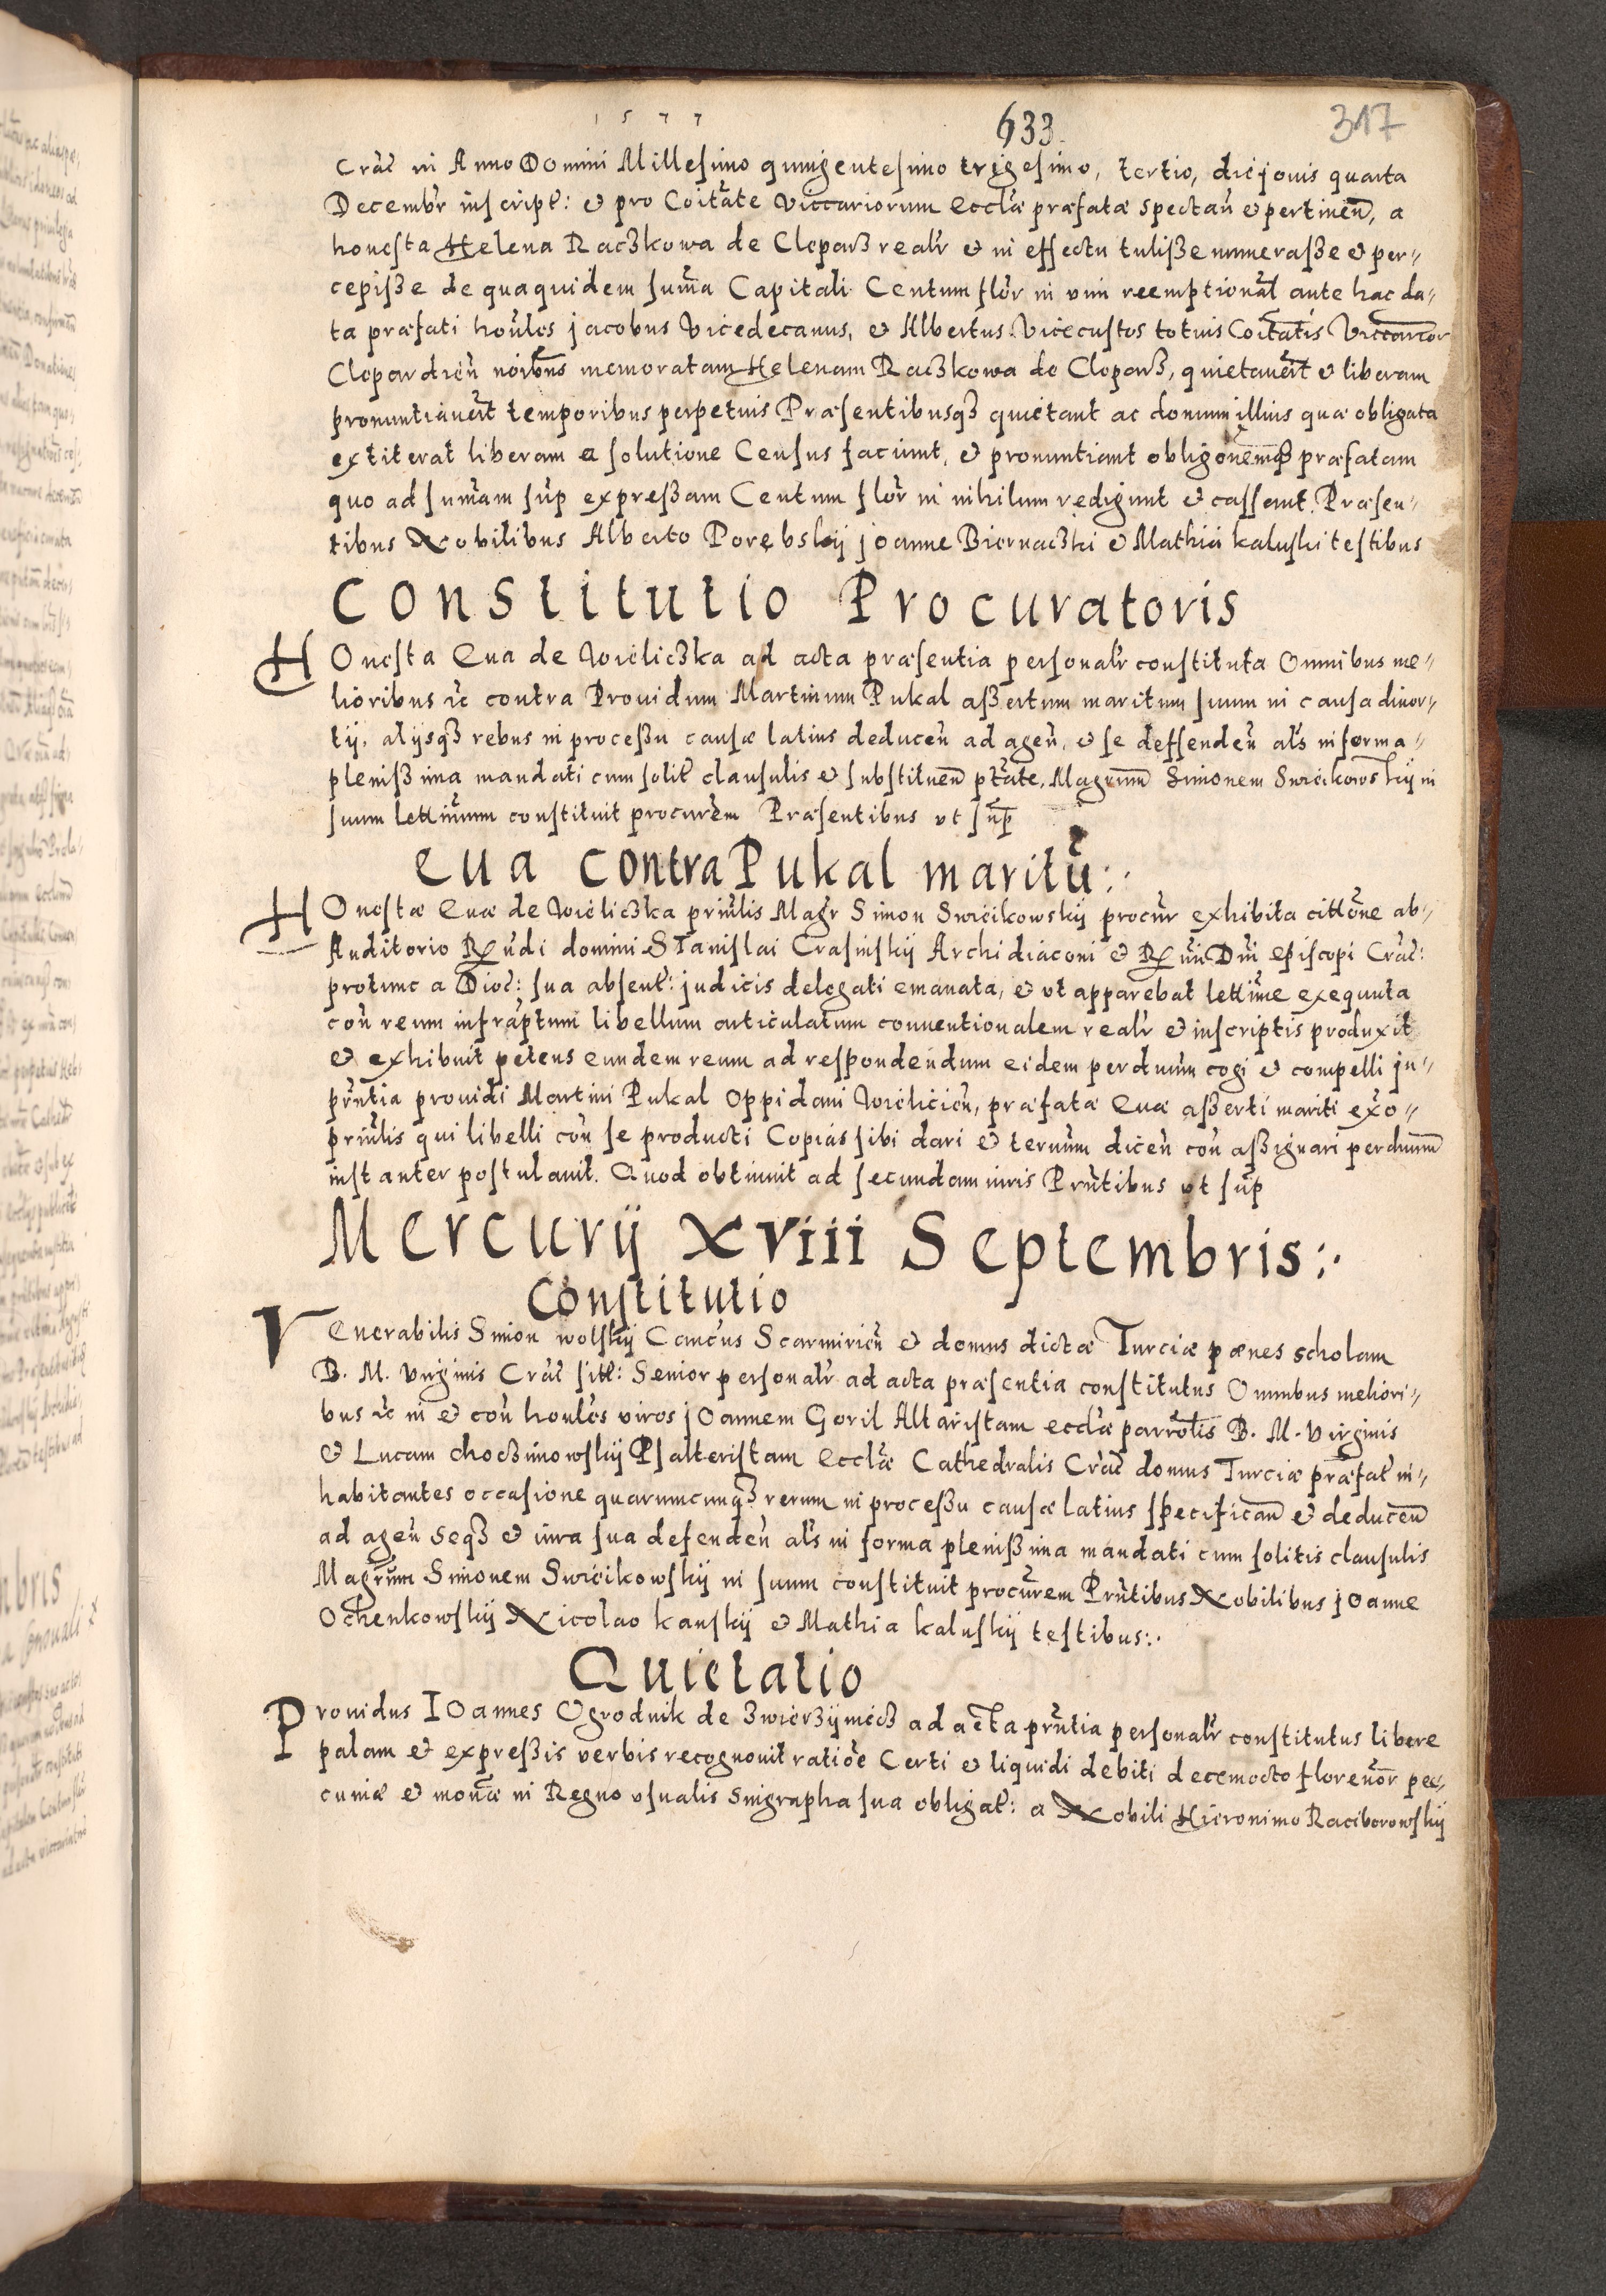 1577
633
317
Crać in Anno Domini Millesimo quingentesimo trigesimo, tertio, die jovis quarta
Decembr inscript: et pro Coitate viccariorum ecclæ præfatæ spectan et pertinen, a
honesta Helena Raczkowa de Cleparz realr et in effectu tulisse numerasse et per-
cepisse de quaquidem summa Capitali Centum flor in vim reemptional ante hac da-
ta præfati honles jacobus Vicedecanus, et Albertus Vicecustos totius Coitatis Viccarior
Clepardien noibus memoratam Helenam Raczkowa de Cleparz, quietavert et liberam
pronuntiavert temporibus perpetuis Præsentibusqz quietant ac domum illius quæ obligata
extiterat liberam a solutione Census faciunt, et pronuntiant obligonemqz præfatam
quo ad summam sup expressam Centum flor in nihilum redigunt et cassant. Præsen-
tibus Nobilibus Alberto Porębskij joanne Biernaczki et Mathia kaluski testibus
Constitutio Procuratoris
HOnesta Eua de Wieliczka ad acta præsentia personalr constituta Omnibus me-
lioribus ic contra Prouidum Martinum Pukal assertum maritum suum in causa diuor-
tij, alijsqz rebus in processu causæ latius deducen ad agen, et se deffenden als in forma
plenissima mandati cum solit clausulis et substituen ptate, Magrum Simonem Swiëikowskij in
suum lettimum constituit procurem Præsentibus vt sup
Eua contra Pukal maritu:.
HOnestæ Euæ de Wieliczka prinlis Magr Simon Swiëikowskij procur exhibita cittone ab
Auditorio Rndi domini Stanislai Crasinskij Archidiaconi et Rmi Dni Episcopi Crać:
protunc a Dioć: sua absent: judicis delegati emanata, et vt apparebat lettime exequuta
con reum infraptum libellum articulatum conuentionalem realr et inscriptis produxit
et exhibuit petens eundem reum ad respondendum eidem per dnum cogi et compelli in
prntia prouidi Martini Pukal Oppidani Wielicien, præfatæ Euæ asserti mariti exo-
prinlis qui libelli con se producti Copias sibi dari et ternum dicen con assignari per dnum
instanter postulauit. Quod obtinuit ad secundam iuris Prntibus vt sup
Mercurij xviii Septembris:.
Constitutio
Venerabilis Simon wolskij Cancus Scarmirien et domus dictæ Turciæ pænes scholam
B. M. Virginis Crać sitt: Senior personalr ad acta præsentia constitutus Omnibus meliori-
bus ic in et con honles viros jOannem Goril Altaristam ecclæ parrotis B. M. Virginis
et Lucam choczimowskij Psalteristam Ecclæ Cathedralis Crać domus Turciæ præfat in-
habitantes occasione quarumcunqz rerum in processu causæ latius specifican et deducen
ad agen seqz et iura sua defenden als in forma plenissima mandati cum solitis clausulis
Magrum Simonem Swiëikowskij in suum constituit procurem Prntibus Nobilibus jOanne
Ochenkowskij Nicolao kanskij et Mathia kaluskij testibus:.
Quietatio
Prouidus IOannes Ogrodnik de Zwierzijniecz ad acta prntia personalr constitutus libere
palam et expressis verbis recognouit ratioe Certi et liquidi debiti decemocto florenor pe-
cuniæ et monæ in Regno vsualis Singrapha sua obligat: a Nobili Hieronimo Raciborowskij